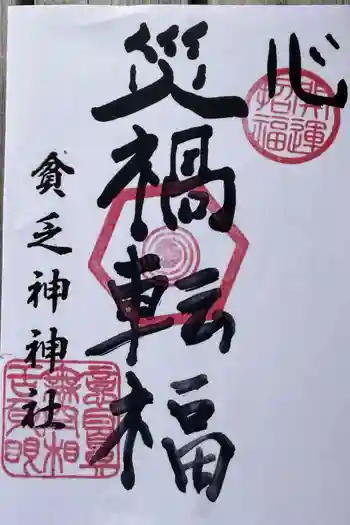 心
開運
招福
災禍転福
貧乏神神社